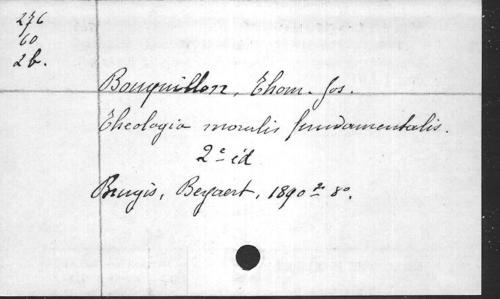 276
60
2b.
Bouquillon, Thom. Jos.
Theologia moralis fundamentalis.
2e éd
Brugis, Beyaert, 1890 8o.